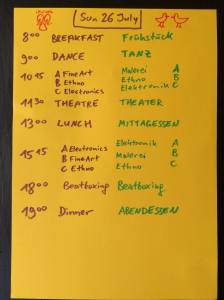 Sun 26 July
8⁰⁰ BREAKFAST Frühstück
9⁰⁰ DANCE TANZ
10¹⁵ A Fine Art Malerei A
B Ethno Ethno B
C Electronics Elektronik C
11³⁰ THEATRE THEATER
13⁰⁰ LUNCH MITTAGESSEN
15¹⁵ A Electronics Elektronik A
B Fine Art Malerei B
C Ethno Ethno C
18⁰⁰ Beatboxing Beatboxing
19⁰⁰ Dinner ABENDESSEN